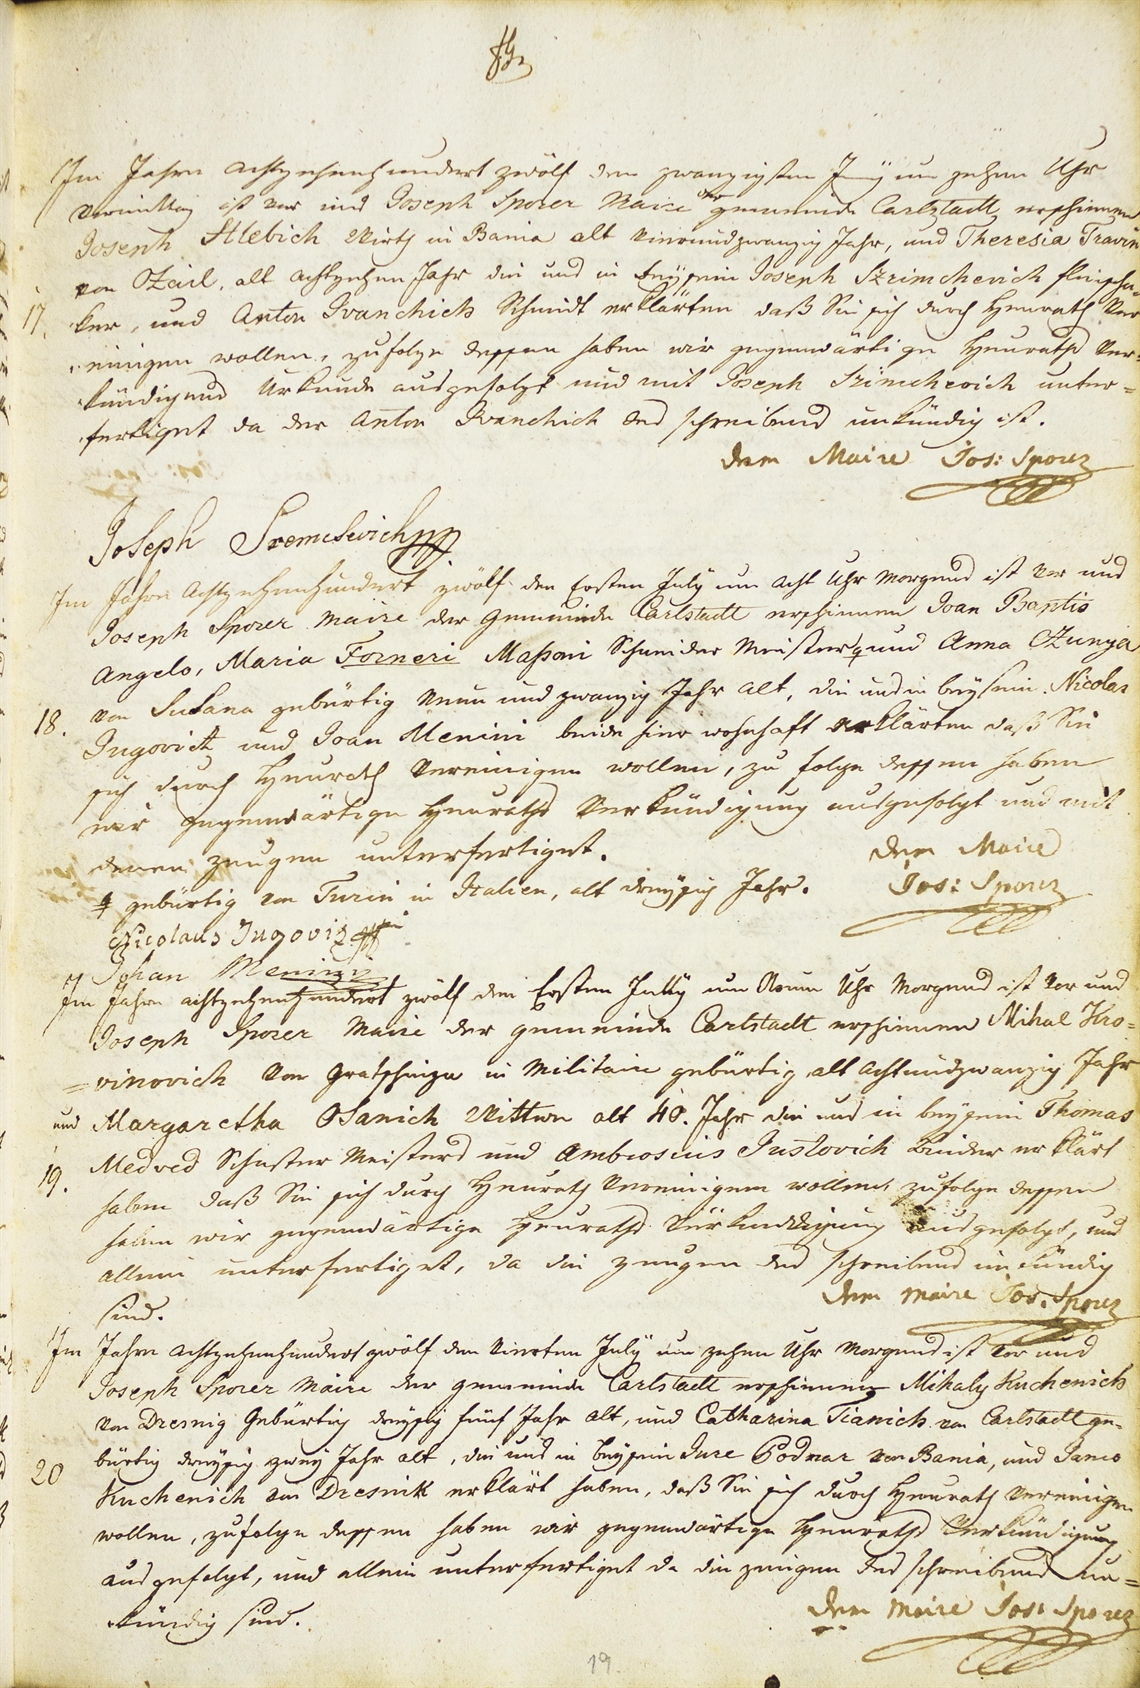 Im Jahre achtzehenhundert zwölf den zwanzigsten Juny um zehen Uhr
Vormittag ist vor uns Joseph Sporer Maire der gemeinde Carlstadt erschienen
Joseph Hlebich Wirth in Bania alt Vierundzwanzig Jahr, und Theresia Travin
von Ozail, alt achtzehen Jahr die uns in beysein Joseph Szrimchevich
17. ker, und Anton Ivanchich Schmidt erklärten daß Sie sich durch Heurath Ver
einigen wollen, zufolge dessen haben wir gegenwärtige Heuraths Ver=
kündigung Urkunde ausgefolgt und mit Joseph Srimchevich unter=
fertiget da der Anton Ivanchich des schreibens unkündig ist.
Der Maire Jos: Sporer
Joseph Sremcsevich
Im Jahre Achtzehenhundert zwölf den Ersten July um Acht Uhr Morgens ist Vor uns
Joseph Sporer Maire der Gemeinde Carlstadt erschienen Joan Baptis
Angelo, Maria Forneri Massoni Schneider Meister und Anna Czunja
18. von Susana gebürtig Neun und zwanzig Jahr alt, die uns in beysein Nicolas
Jugovich und Joan Menini beide hier wohnhaft erklärten daß Sie
sich durch Heurath Vereinigen wollen, zu folge dessen haben
wir gegenwärtige Heuraths Verkündigung ausgefolgt und mit
denen zeugen unterfertiget.
Der Maire
gebürtig von Turin in Italien, alt dreyssig Jahr.
Jos: Sporer
Nicolaus Jugoviz
Johan Menini
Im Jahre achtzehenhundert zwölf den Ersten July um Neun Uhr Morgens ist Vor uns
Joseph Sporer Maire der gemeinde Carlstadt erschienen Mihal Kro=
=vinovich Von in Militaire gebürtig alt Achtundzwanzig Jahr
und Margaretha Osanich Wittwe alt 40. Jahr die uns in beysein Thomas
19. Medved Schuster Meisters und Ambrosius Justovich Binder erklärt
haben daß Sie sich durch Heurath Vereinigen wollen zufolge dessen
haben wir gegenwärtige Heuraths Verkündigung ausgefolgt, und
allein unterfertiget, da die zeugen des schreibens unkündig
sind.
Der Maire Jos: Sporer
Im Jahre Achtzehenhundert zwölf den Vierten July um zehen Uhr Morgens ist Vor uns
Joseph Sporer Maire der gemeinde Carlstadt erschienen Mihaly Kuchenich
Von Dresnig Gebürtig dreyssig fünf Jahr alt, und Catharina Tianich von Carlstadt ge=
20 bürtig dreyssig zwey Jahr alt, die uns in beysein Jure Podmar von Bania, und Janco
Kuchenich von Dresnik erklärt haben, daß Sie sich durch Heurath Vereinigen
wollen, zufolge dessen haben wir gegenwärtige Heuraths Verkündigung
ausgefolgt, und allein unterfertiget da die zeugen des schreibens un=
kündig sind.
Der Maire Jos: Sporer
19.